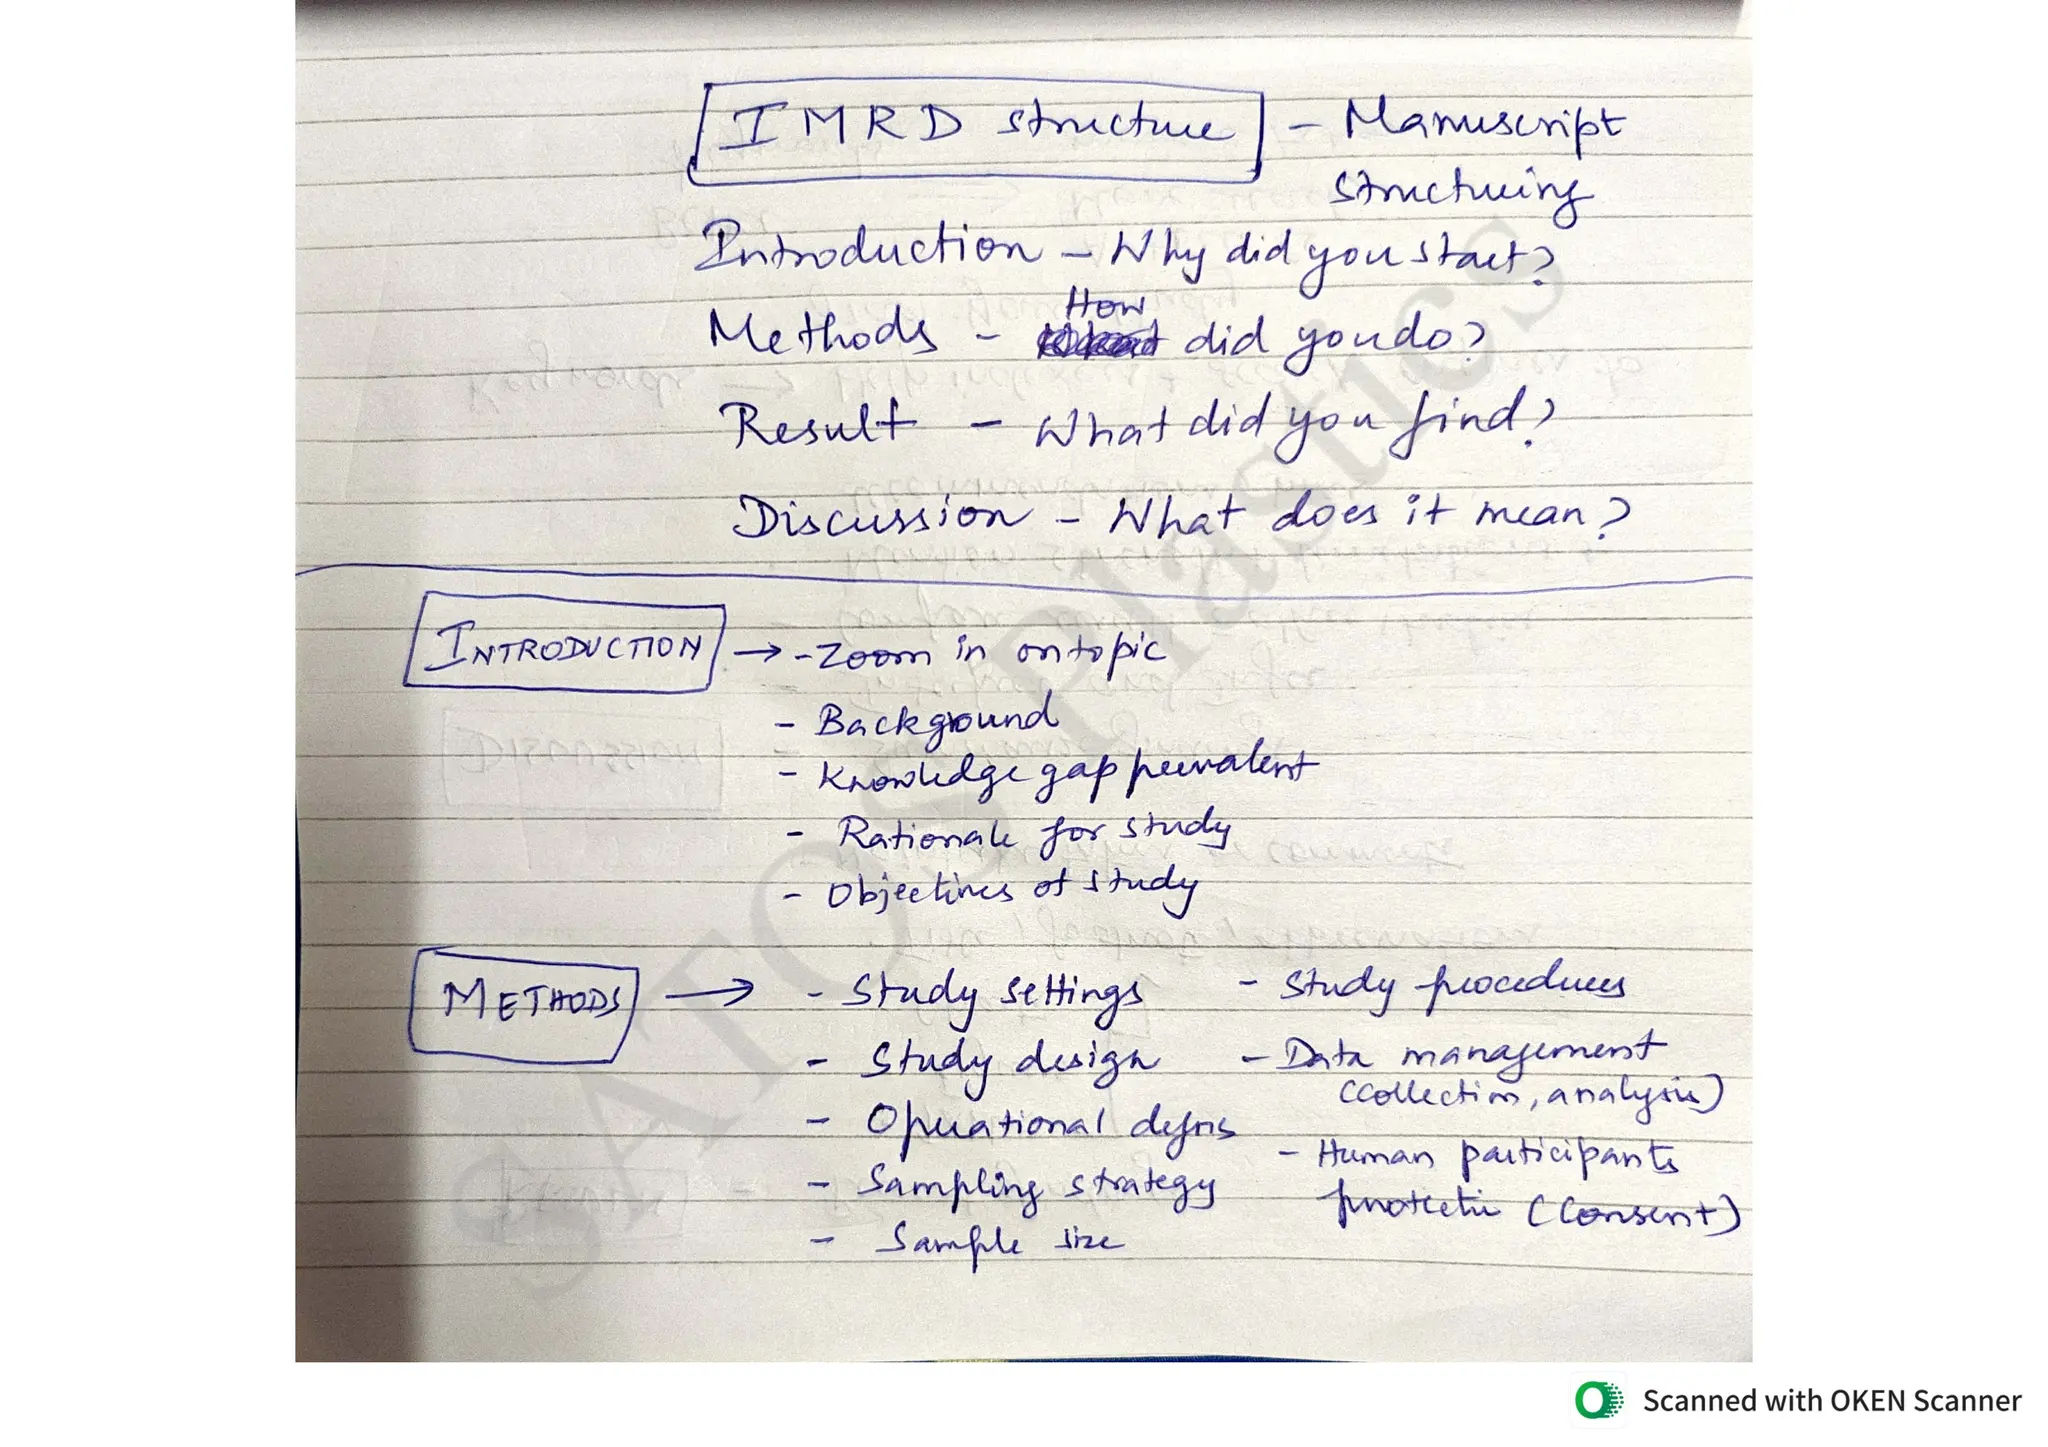 IMRD structure - Manuscript
structuring
Introduction - Why did you start?
How
Methods - did you do?
Result - What did you find?
Discussion - What does it mean?
INTRODUCTION → - Zoom in on topic
- Background
- Knowledge gap prevalent
- Rationale for study
- Objectives of study
METHODS → - Study settings
- Study design
- Operational defns
- Sampling strategy
- Sample size
- Study procedures
- Data management
(Collection, analysis)
- Human participants
protectn (Consent)
SATOS Plastics
Scanned with OKEN Scanner